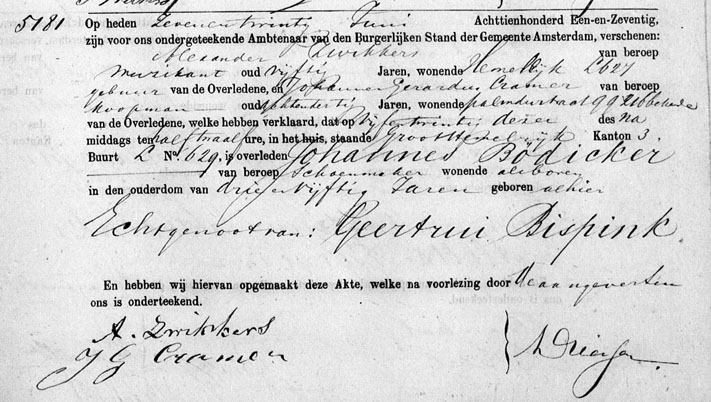 5181 Op heden Zevenentwintig Juni Achttienhonderd Een-en-Zeventig,
zijn voor ons ondergeteekende Ambtenaar van den Burgerlijken Stand der Gemeente Amsterdam, verschenen:
Alexander Zwikkers van beroep
muzikant oud vijftig Jaren, wonende L 627
gebuur van de Overledene, en Johannes Gerardus Cramer van beroep
koopman oud Jaren, wonende palmdwstraat 99 bekende
van de Overledene, welke hebben verklaard, dat op Vijfentwintig dezer des na
middags ten half twaalf ure, in het huis, staande Kanton 3.
Buurt L No. 629, is overleden Johannes Bödicker
van beroep Schoenmaker wonende aldaar
in den ouderdom van drieenvijftig Jaren geboren alhier
Echtgenoot van: Geertrui Bispink
En hebben wij hiervan opgemaakt deze Akte, welke na voorlezing door de aangevers en
ons is onderteekend.
A. Zwikkers
J G Cramer